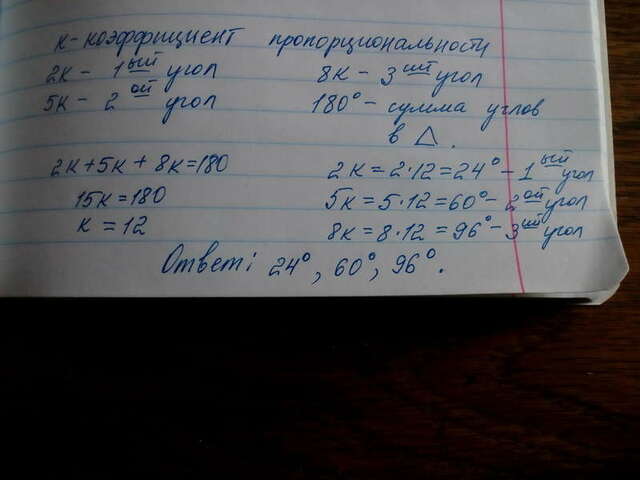 к-коэффициент пропорциональности
2к - 1ый угол 8к - 3ий угол
5к - 2ой угол 180° - сумма углов
в △.
2к+5к+8к=180 2к=2·12=24° - 1ый угол
15к=180 5к=5·12=60° - 2ой угол
к=12 8к=8·12=96° - 3ий угол
Ответ: 24°, 60°, 96°.